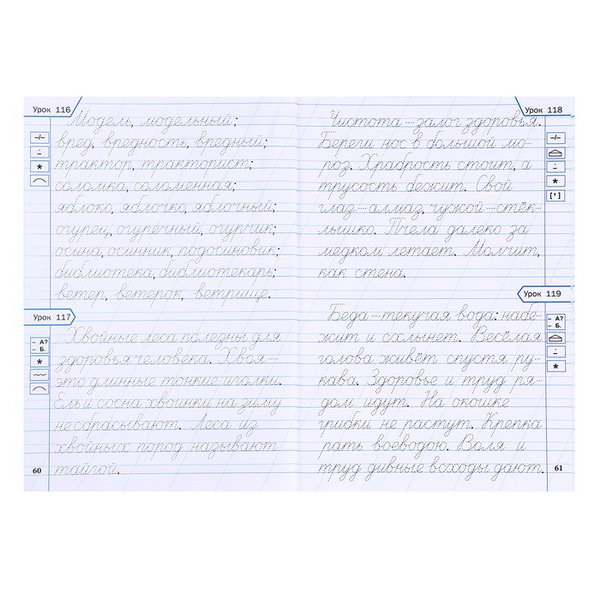 Урок 116
Модель, модельный;
вред, вредность, вредный;
трактор, тракторист;
соломка, соломенная;
яблоко, яблочко, яблочный;
огурец, огуречный, огурчик;
осина, осинник, подосиновик;
библиотека, библиотекарь;
ветер, ветерок, ветрище.
Урок 117
– А?
– Б.
Хвойные леса полезны для
здоровья человека. Хвоя —
это длинные тонкие иголки.
Ель и сосна хвоинки на зиму
не сбрасывают. Леса из
хвойных пород называют
тайгой.
60
Урок 118
Чистота — залог здоровья.
Береги нос в большой мо-
роз. Храбрость стоит, а
трусость бежит. Свой
глаз — алмаз, чужой — стёк-
лышко. Пчела далеко за
медком летает. Молчит,
как стена.
Урок 119
– А?
– Б.
Беда — текучая вода: набе-
жит и схлынет. Весёлая
голова живёт спустя ру-
кава. Здоровье и труд ря-
дом идут. На окошке
грибки не растут. Крепка
рать воеводою. Воля и
труд дивные всходы дают.
61